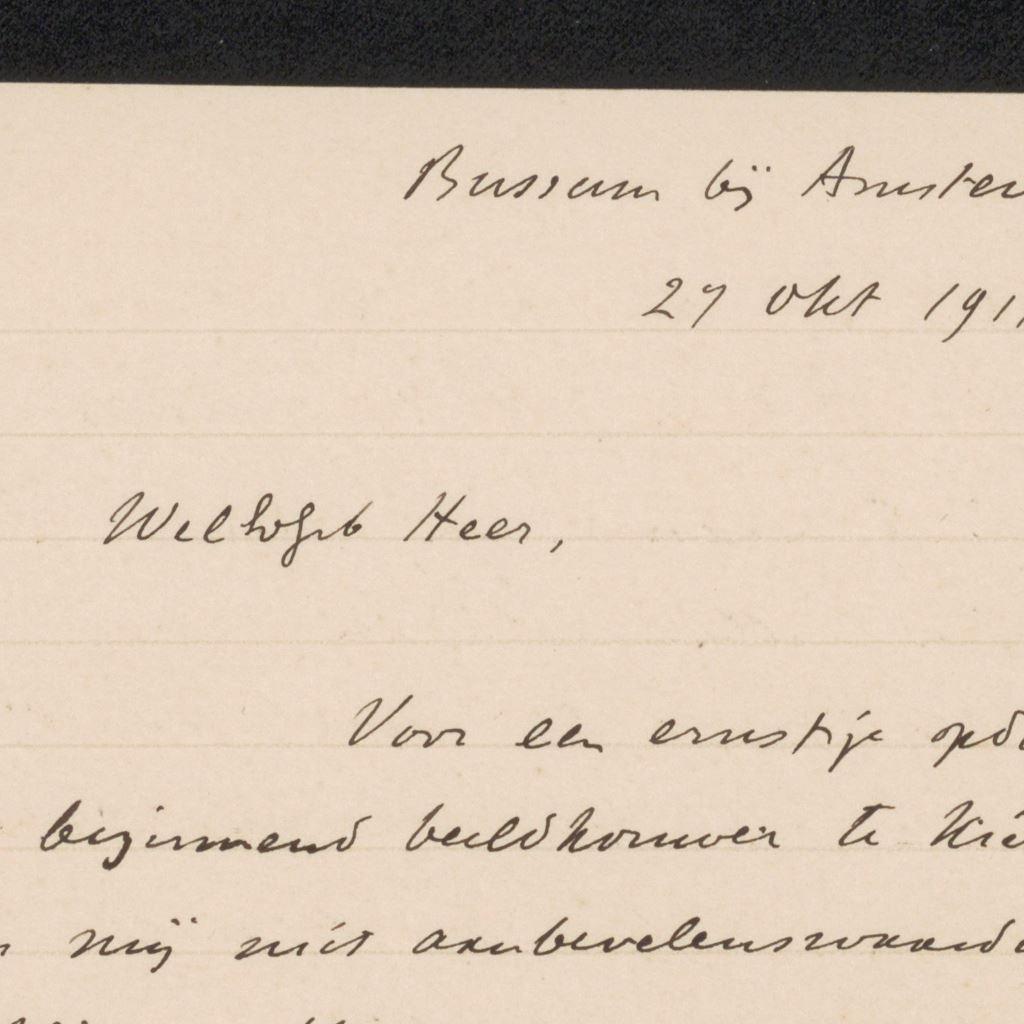 Bussum bij Amster
27 Okt 191
WelhGeb Heer,
Voor een ernstige opd
beginnend beeldhouwer te kie
mij niet aanbevelenswaard